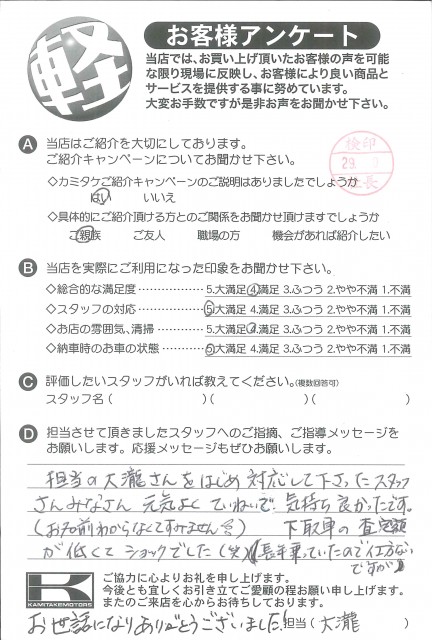 軽
お客様アンケート
当店では、お買い上げ頂いたお客様の声を可能
な限り現場に反映し、お客様により良い商品と
サービスを提供する事に努めています。
大変お手数ですが是非お声をお聞かせ下さい。
検印
29.
社長
A 当店はご紹介を大切にしております。
ご紹介キャンペーンについてお聞かせ下さい。
◇カミタケご紹介キャンペーンのご説明はありましたでしょうか
はい いいえ
◇具体的にご紹介頂ける方とのご関係をお聞かせ頂けますでしょうか
ご親族 ご友人 職場の方 機会があれば紹介したい
B 当店を実際にご利用になった印象をお聞かせ下さい。
◇総合的な満足度 ……………… 5.大満足 4.満足 3.ふつう 2.やや不満 1.不満
◇スタッフの対応 ……………… 5.大満足 4.満足 3.ふつう 2.やや不満 1.不満
◇お店の雰囲気、清掃 ………… 5.大満足 4.満足 3.ふつう 2.やや不満 1.不満
◇納車時のお車の状態 ………… 5.大満足 4.満足 3.ふつう 2.やや不満 1.不満
C 評価したいスタッフがいれば教えてください。(複数回答可)
スタッフ名 ( )( )( )
D 担当させて頂きましたスタッフへのご指摘、ご指導メッセージを
お願いします。応援メッセージもぜひお願いします。
担当の大瀧さんをはじめ 対応して下さったスタッフ
さんみなさん 元気よく ていねいで 気持ち良かったです。
(お名前わからなくてすみません) 下取車の査定額
が低くてショックでした(笑)(長年乗っていたので仕方ない
ですが)
K
KAMITAKEMOTORS
ご協力に心よりお礼を申し上げます。
今後とも宜しくお引き立てご愛顧の程お願い申し上げます。
またのご来店を心からお待ちしております。
お世話になりありがとうございました!
担当 ( 大瀧 )